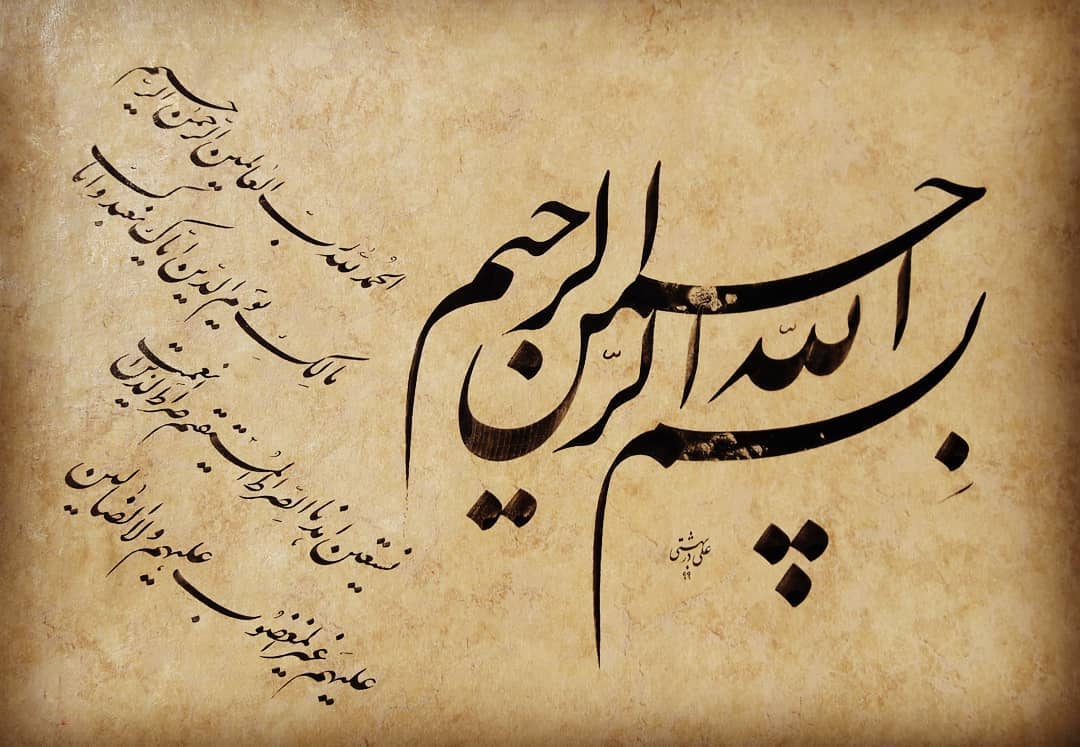 بِسم الله الرّحمن الرحیم
الحمُد للّه ربّ العالمین الرّحمن الرّحیم
مالکِ یوَم الدّین ایّاک نعبد و ایّاک
نستعین اهدنا الصِّراط المستقیم صراط الذّین انعمت
علیهم غیَر المغضُوب علیهم ولا الضالین
علی درّبهشتی
۹۹